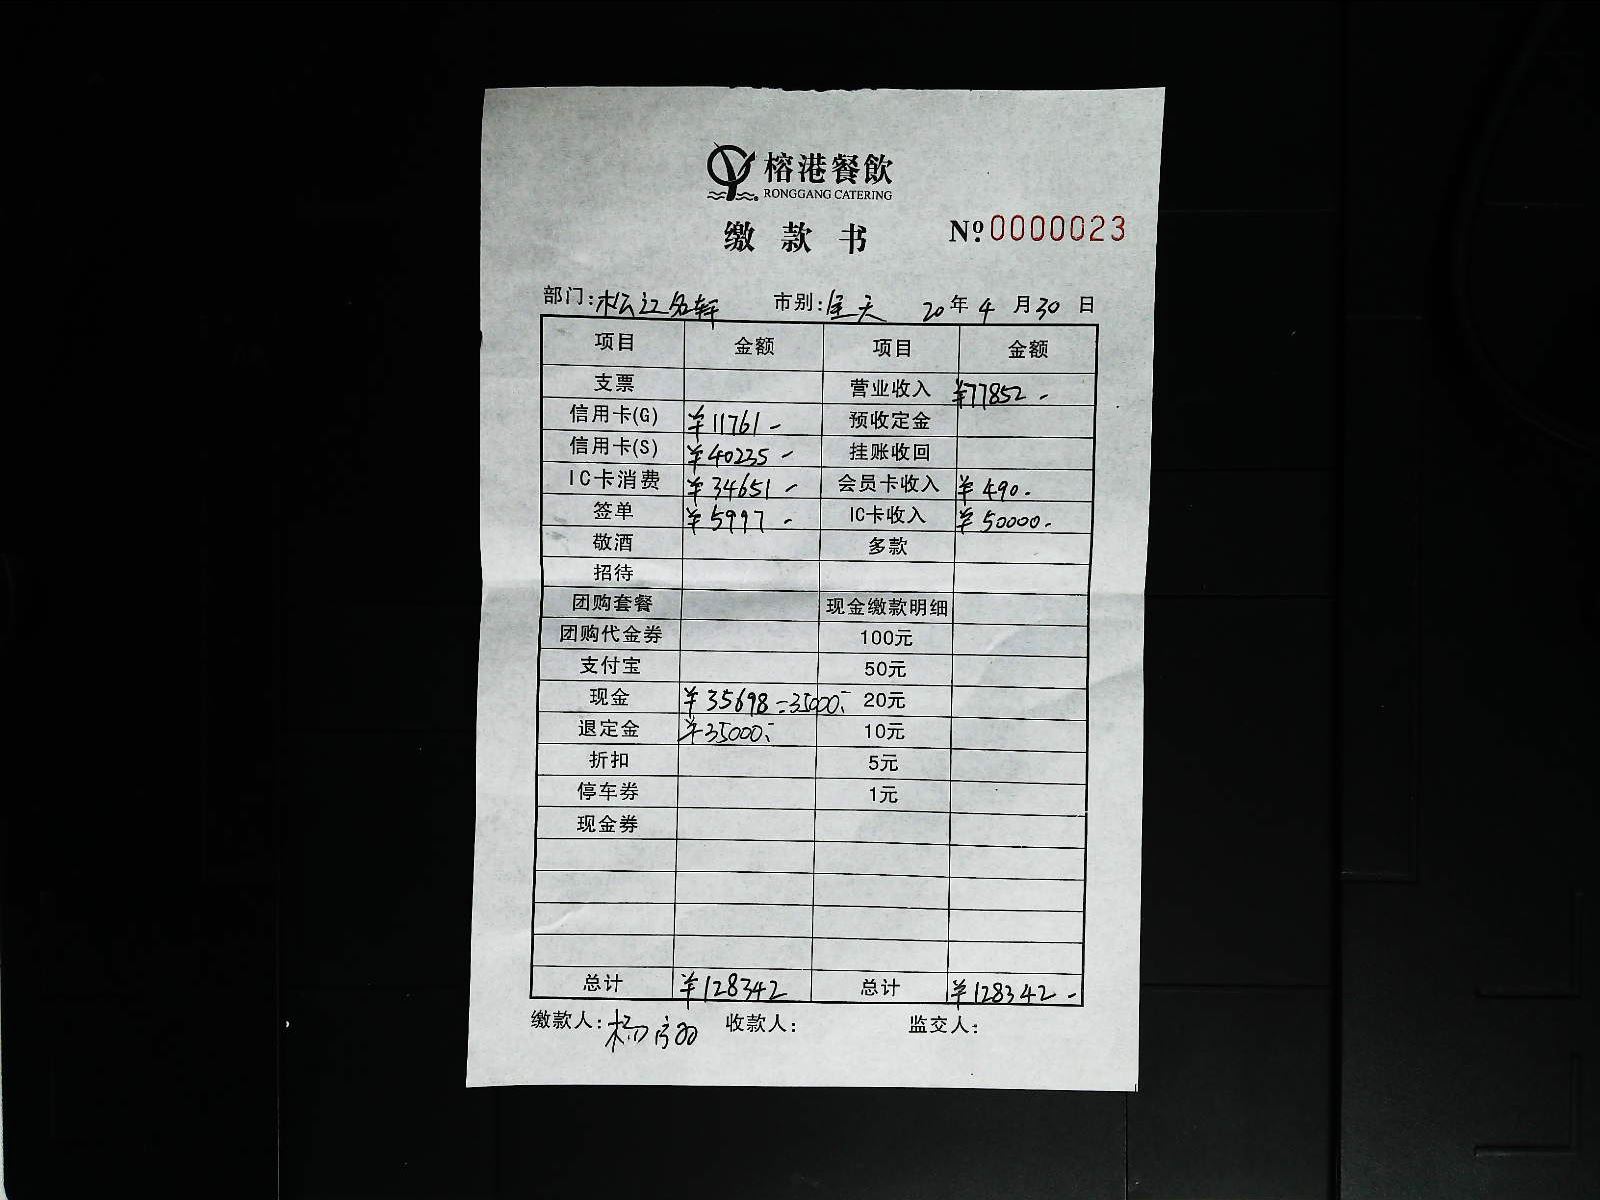 榕港餐飲
RONGGANG CATERING
缴款书 №0000023
部门:松江名轩 市别:全天 20年4月30日
项目 金额 项目 金额
支票 营业收入 ¥77852-
信用卡(G) ¥11761- 预收定金
信用卡(S) ¥40235- 挂账收回
IC卡消费 ¥34651- 会员卡收入 ¥490-
签单 ¥5997- IC卡收入 ¥50000-
敬酒 多款
招待
团购套餐 现金缴款明细
团购代金券 100元
支付宝 50元
现金 ¥35698=35000- 20元
退定金 ¥35000- 10元
折扣 5元
停车券 1元
现金券
总计 ¥128342 总计 ¥128342-
缴款人: 收款人: 监交人: